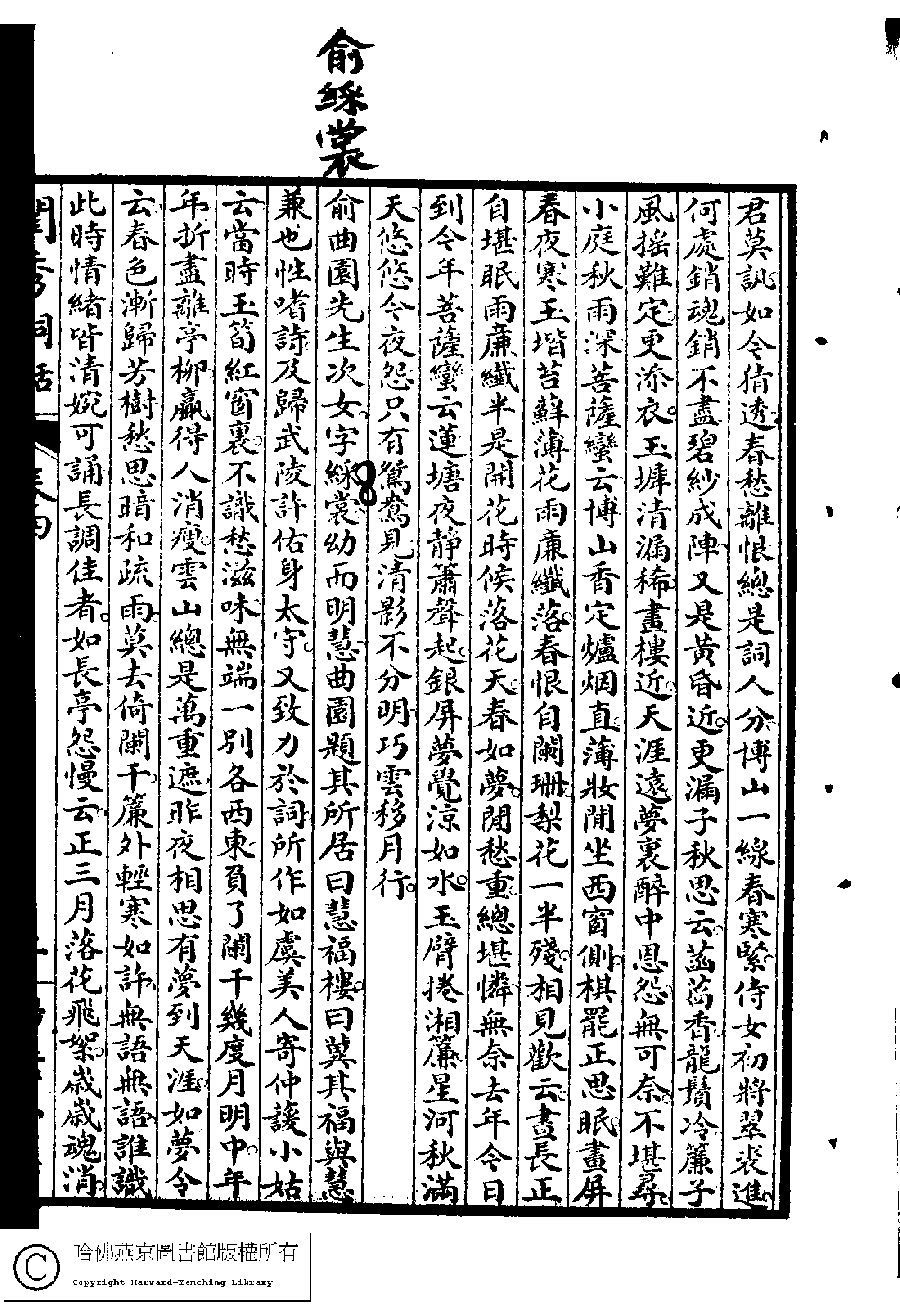 俞綵裳
君莫訊如今猜透春愁離恨總是詞人分博山一線春寒緊侍女初將翠裘進
何處銷魂銷不盡碧紗成陣又是黃昏近更漏子秋思云菡萏香龍鬚冷簾子
風搖難定更添衣玉墀清漏稀畫樓近天涯遠夢裏醉中恩怨無可奈不堪尋
小庭秋雨深菩薩蠻云博山香定爐烟直薄妝閒坐西窗側棋罷正思眠畫屏
春夜寒玉堦苔蘚薄花雨廉纖落春恨自闌珊梨花一半殘相見歡云晝長正
自堪眠雨廉纖半是開花時候落花天春如夢閒愁重總堪憐無奈去年今日
到今年菩薩蠻云蓮塘夜靜簫聲起銀屏夢覺涼如水玉臂捲湘簾星河秋滿
天悠悠今夜怨只有鴛鴦見清影不分明巧雲移月行
俞曲園先生次女字綵裳幼而明慧曲園題其所居曰慧福樓曰冀其福與慧
兼也性嗜詩及歸武陵許佑身太守又致力於詞所作如虞美人寄仲諼小姑
云當時玉筍紅窗裏不識愁滋味無端一別各西東負了闌干幾度月明中年
年折盡離亭柳贏得人消瘦雲山總是萬重遮昨夜相思有夢到天涯如夢令
云春色漸歸芳樹愁思暗和疏雨莫去倚闌干簾外輕寒如許無語無語誰識
此時情緒皆清婉可誦長調佳者如長亭怨慢云正三月落花飛絮歲歲魂消
閨秀詞話
哈佛燕京圖書館版權所有
Copyright Harvard-Yenching Library